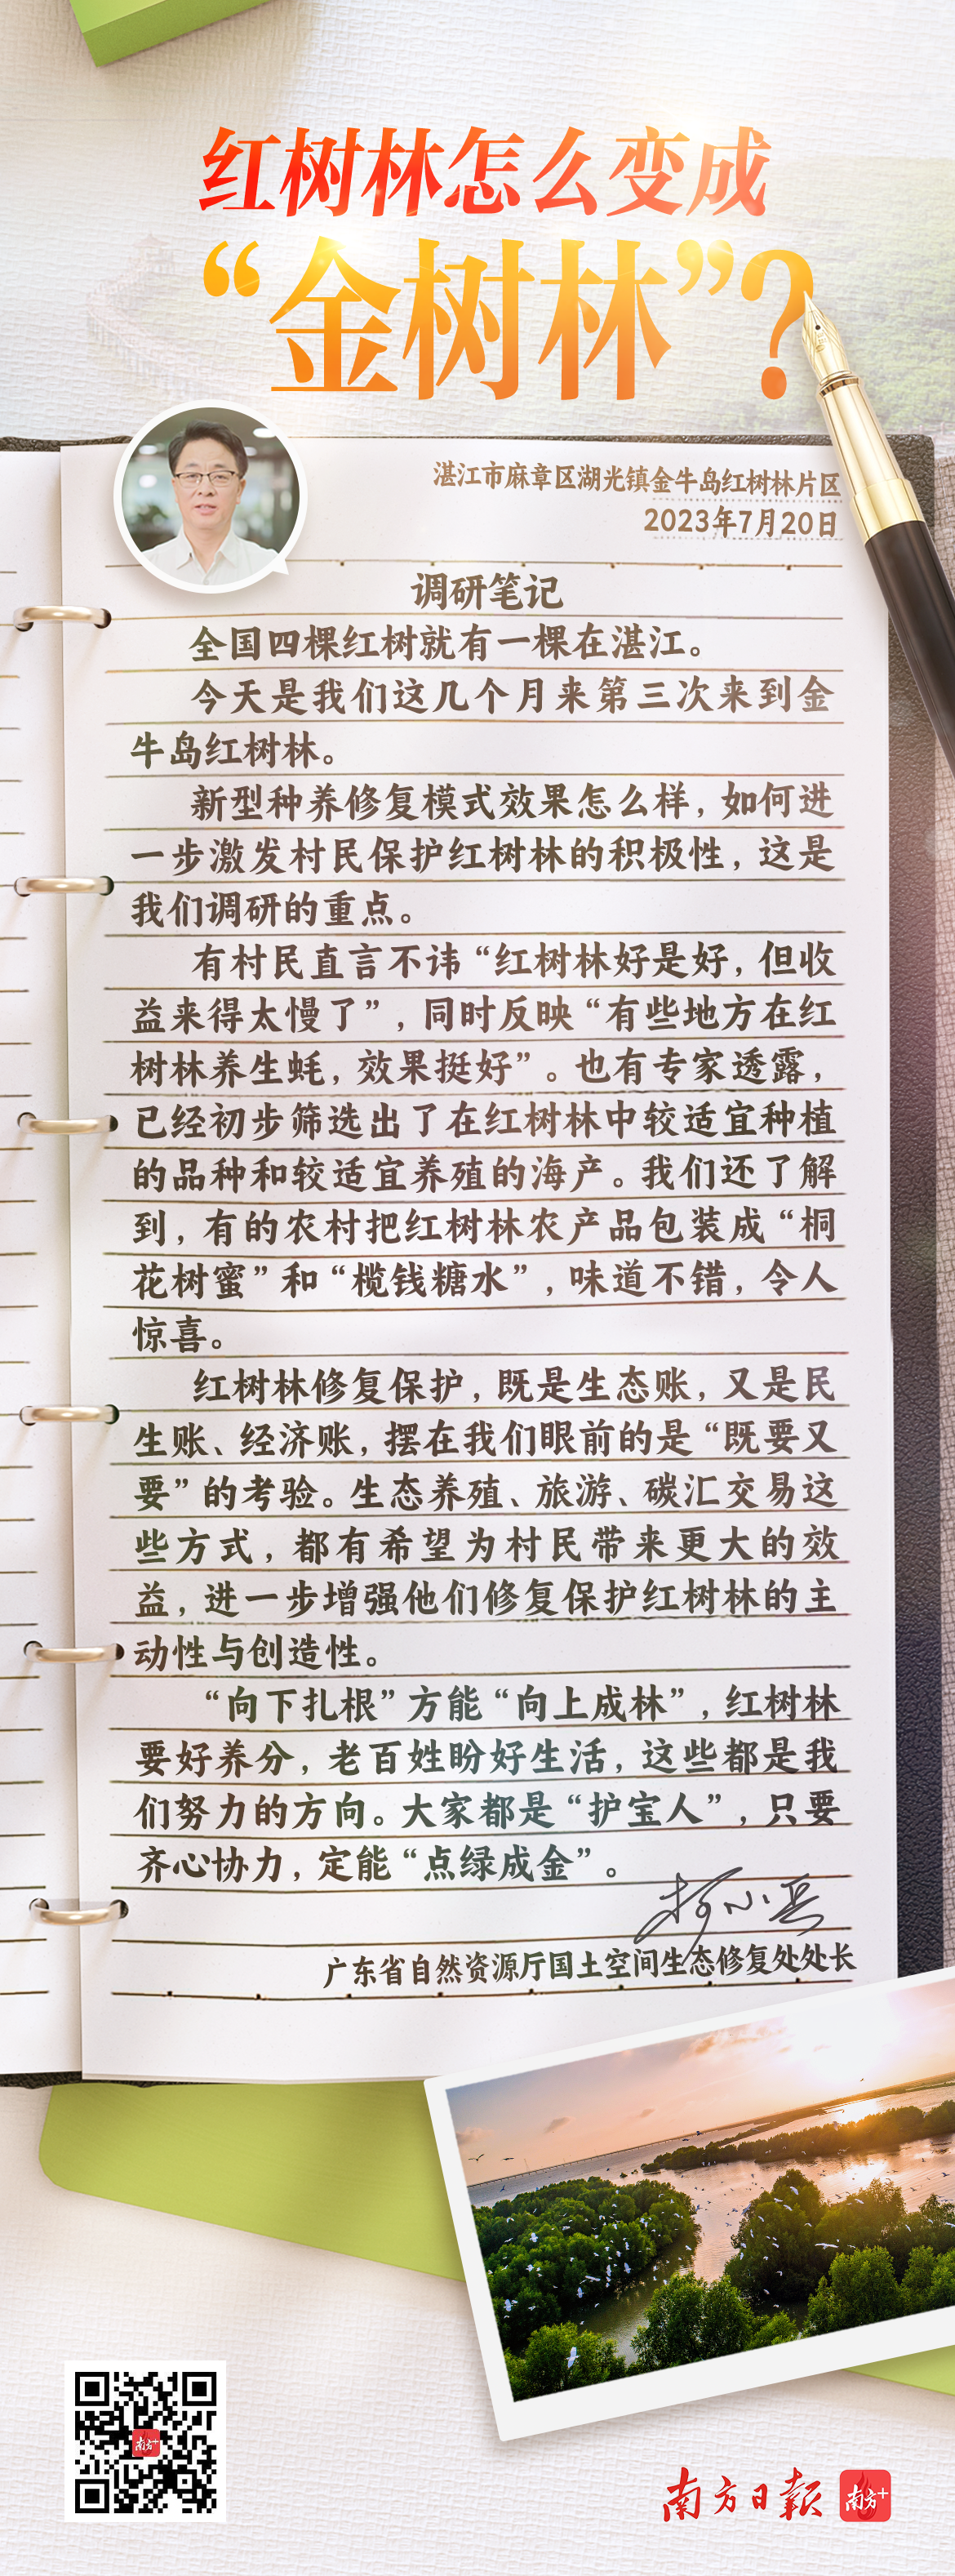 红树林怎么变成
“金树林”?
湛江市麻章区湖光镇金牛岛红树林片区
2023年7月20日
调研笔记
全国四棵红树就有一棵在湛江。
今天是我们这几个月来第三次来到金
牛岛红树林。
新型种养修复模式效果怎么样，如何进
一步激发村民保护红树林的积极性，这是
我们调研的重点。
有村民直言不讳“红树林好是好，但收
益来得太慢了”，同时反映“有些地方在红
树林养生蚝，效果挺好”。也有专家透露，
已经初步筛选出了在红树林中较适宜种植
的品种和较适宜养殖的海产。我们还了解
到，有的农村把红树林农产品包装成“桐
花树蜜”和“榄钱糖水”，味道不错，令人
惊喜。
红树林修复保护，既是生态账，又是民
生账、经济账，摆在我们眼前的是“既要又
要”的考验。生态养殖、旅游、碳汇交易这
些方式，都有希望为村民带来更大的效
益，进一步增强他们修复保护红树林的主
动性与创造性。
“向下扎根”方能“向上成林”，红树林
要好养分，老百姓盼好生活，这些都是我
们努力的方向。大家都是“护宝人”，只要
齐心协力，定能“点绿成金”。
柯小兵
广东省自然资源厅国土空间生态修复处处长
南方+
南方日报 南方+